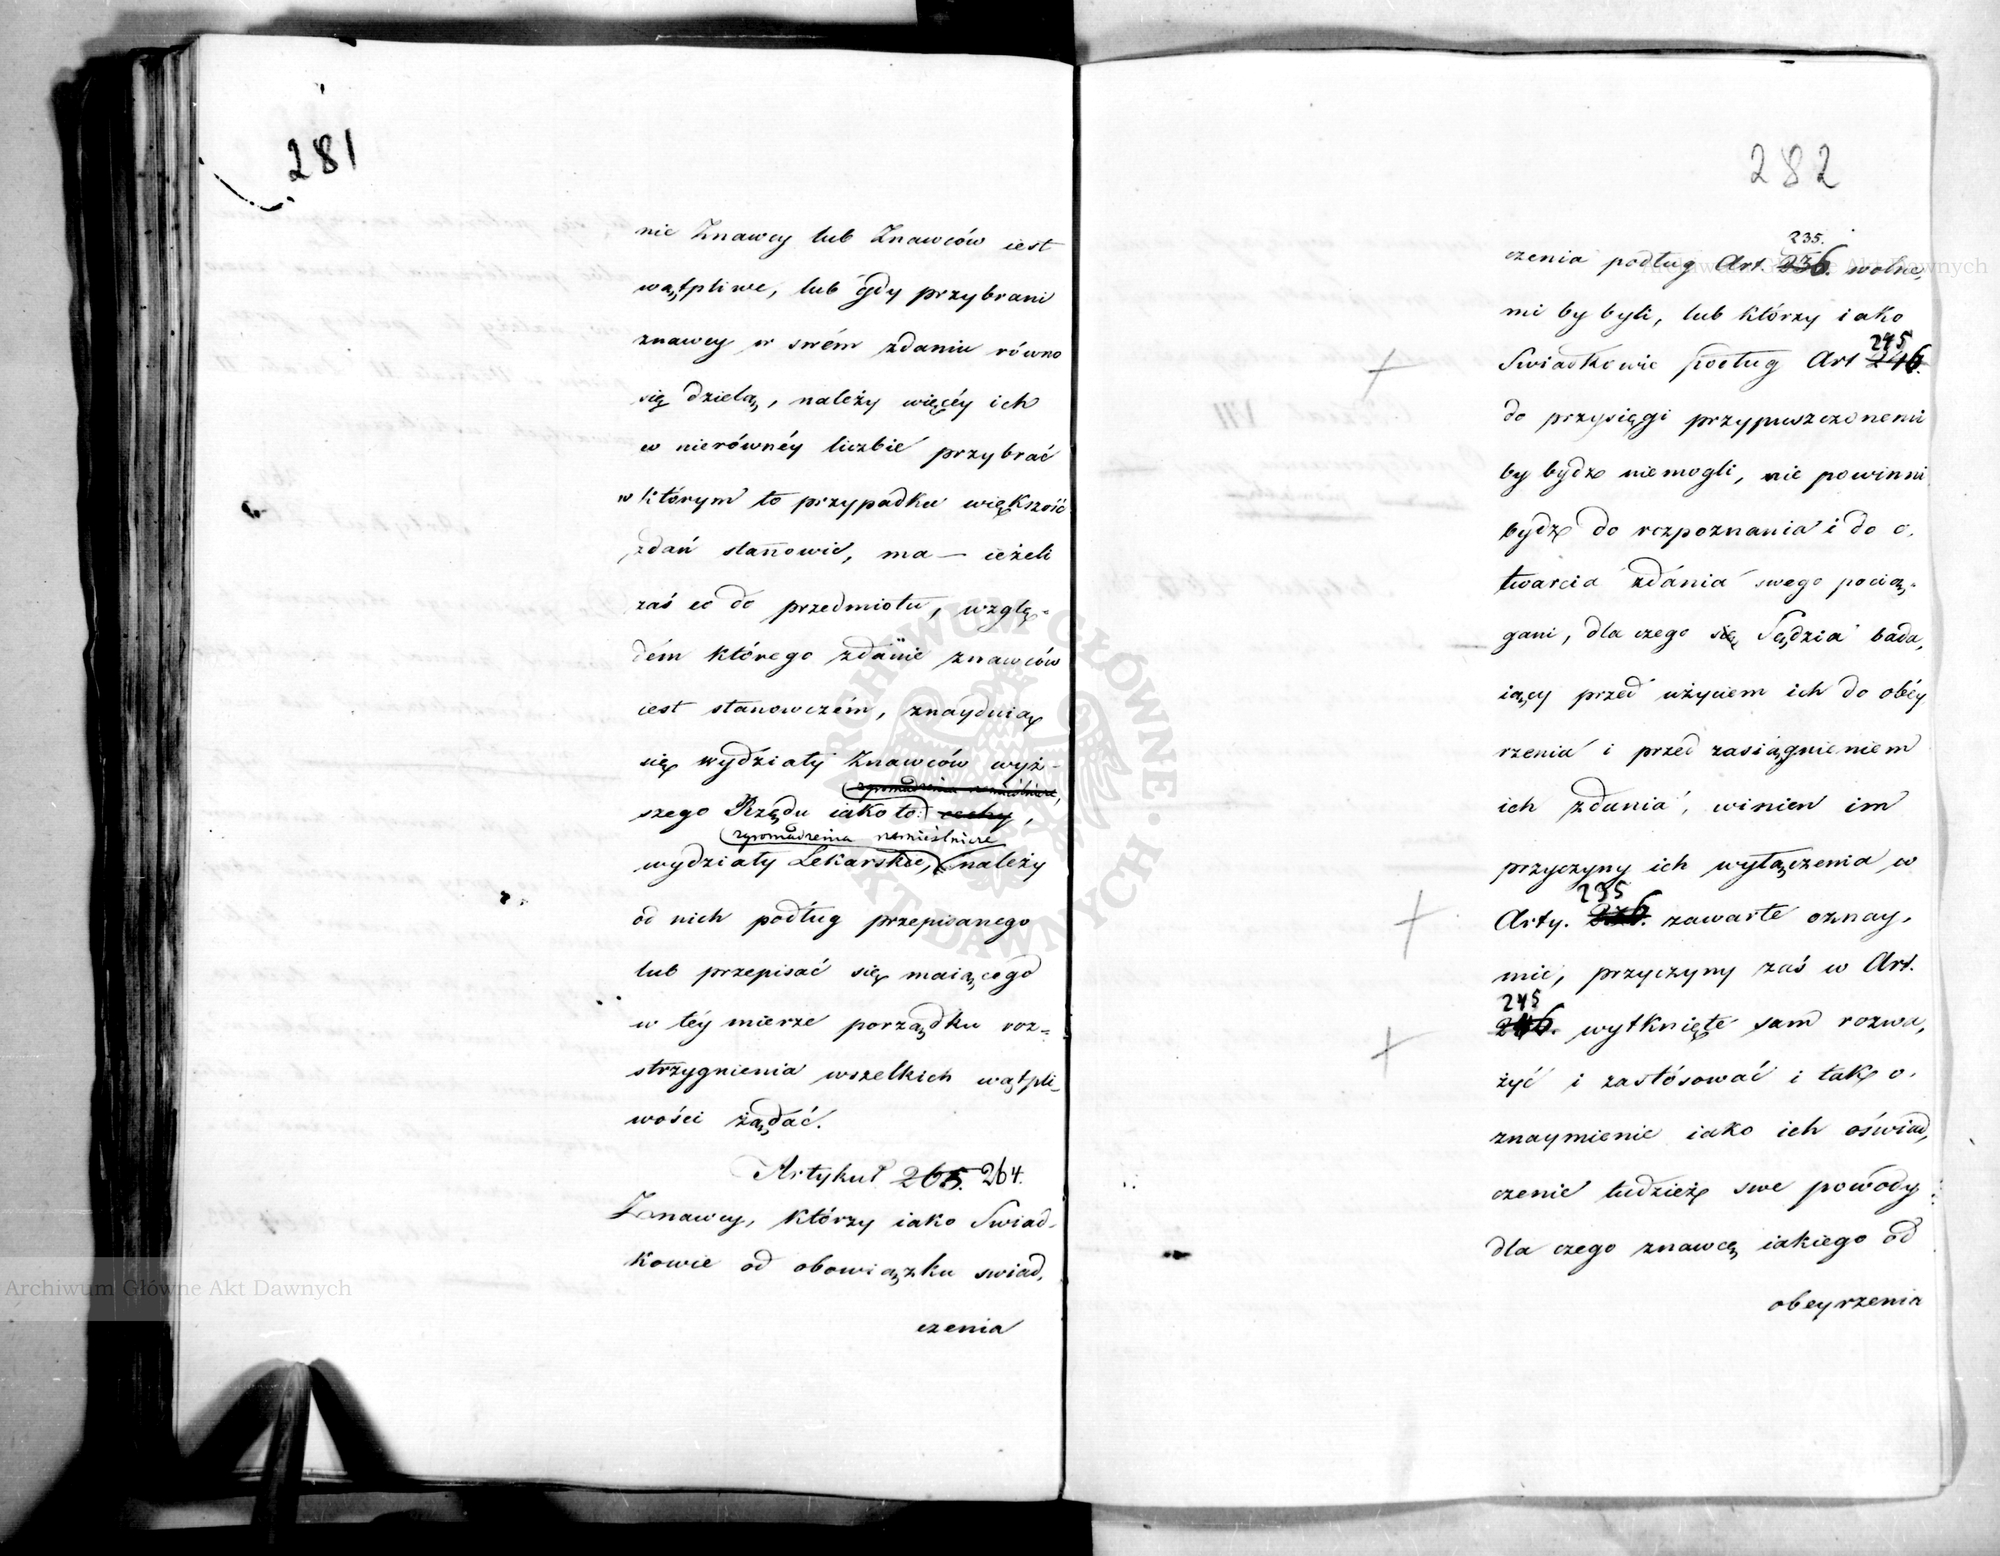 281
nie Znawcy lub Znawców iest
wątpliwe, lub gdy przybrani
znawcy w swém zdaniu równo
się dzielą, należy więcéy ich
w nierównéy liczbie przybrać
w którym to przypadku większość
zdań stanowić, ma — ieżeli
zaś co do przedmiotu, wzglę-
dém którego zdanie znawców
iest stanowczém, znayduią
się wydziały Znawców wyż-
zgromadzenia rzemieślnicze,
szego Rzędu iako to: cechy,
zgromadzenia rzemieślnicze
wydziały Lekarskie, należy
od nich podług przepisanego
lub przepisać się maiącego
w téy mierze porządku roz-
strzygnienia wszelkich wątpli-
wości żądać.
Artykuł 265. 264.
Znawcy, którzy iako Swiad-
kowie od obowiązku swiad,
czenia
282
235.
czenia podług Art. 236. wolne,
mi by byli, lub którzy iako
245
Swiadkowie podług Art 246.
do przysięgi przypuszczonemi
by bydź niemogli, nie powinni
bydź do rozpoznania i do o,
twarcia zdania swego pocią-
gani, dla czego się Sędzia bada,
iący przed użyciem ich do obéy
rzenia i przed zasiągnieniem
ich zdania, winien im
przyczyny ich wyłączenia w
235
Arty. 236. zawarte oznay,
mić, przyczyny zaś w Art.
245
246. wytknięte sam rozwa,
żyć i zastósować i tak o,
znaymienie iako ich oświad,
czenie tudzież swe powody
dla czego znawcę iakiego od
obeyrzenia
Archiwum Główne Akt Dawnych
Archiwum Główne Akt Dawnych
ARCHIWUM GŁÓWNE AKT DAWNYCH